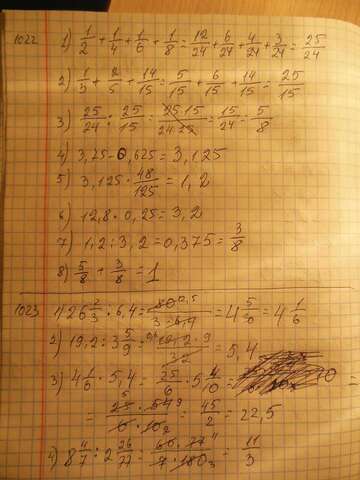 1022 1) 1/2 + 1/4 + 1/6 + 1/8 = 12/24 + 6/24 + 4/24 + 3/24 = 25/24
2) 1/3 + 2/5 + 14/15 = 5/15 + 6/15 + 14/15 = 25/15
3) 25/24 : 25/15 = 25·15/24·25 = 15/24 = 5/8
4) 3,75 - 0,625 = 3,125
5) 3,125 · 48/125 = 1,2
6) 12,8 · 0,25 = 3,2
7) 1,2 : 3,2 = 0,375 = 3/8
8) 5/8 + 3/8 = 1
1023 1) 26 2/3 : 6,4 = 80/3·6,4 = 4 = 4 1/6
2) 19,2 : 3 5/9 = 19,2·9/32 = 5,4
3) 4 1/6 · 5,4 = 25/6 · 5 4/10 =
= 25·54/6·10 = 45/2 = 22,5
4) 8 4/7 : 2 26/77 = 60·77/7·180 = 11/3